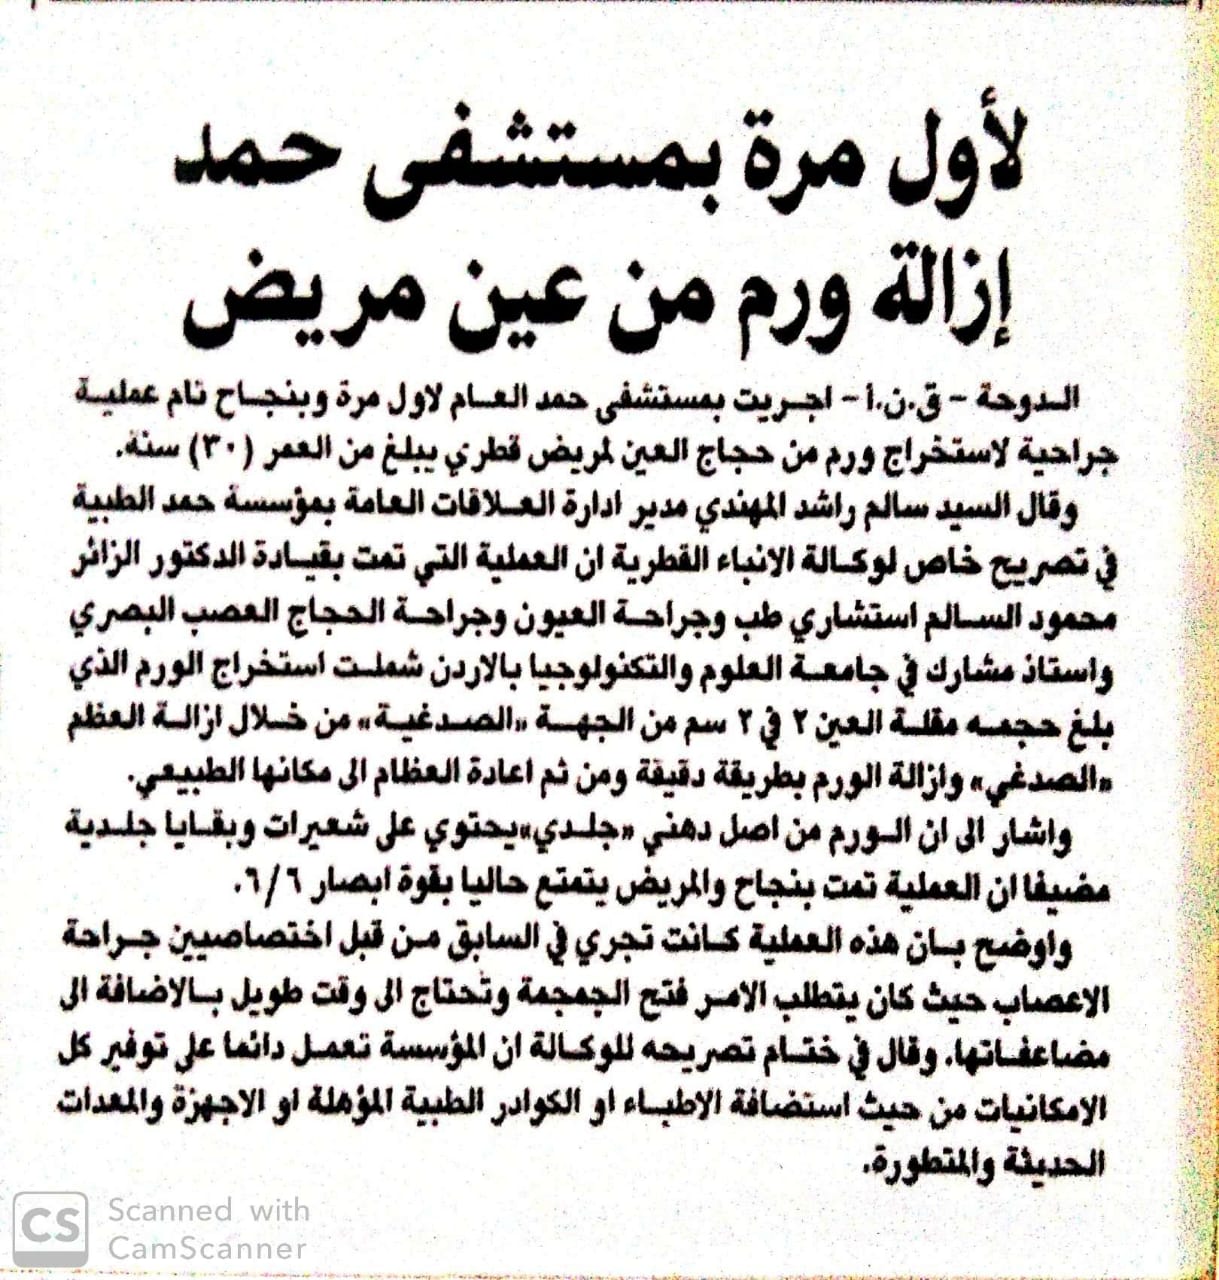 لأول مرة بمستشفى حمد
إزالة ورم من عين مريض
الدوحة - ق.ن.أ - اجريت بمستشفى حمد العام لاول مرة وبنجاح تام عملية
جراحية لاستخراج ورم من حجاج العين لمريض قطري يبلغ من العمر (٣٠) سنة.
وقال السيد سالم راشد المهندي مدير ادارة العلاقات العامة بمؤسسة حمد الطبية
في تصريح خاص لوكالة الانباء القطرية ان العملية التي تمت بقيادة الدكتور الزائر
محمود السالم استشاري طب وجراحة العيون وجراحة الحجاج العصب البصري
واستاذ مشارك في جامعة العلوم والتكنولوجيا بالاردن شملت استخراج الورم الذي
بلغ حجمه مقلة العين ٢ في ٢ سم من الجهة «الصدغية» من خلال ازالة العظم
«الصدغي» وازالة الورم بطريقة دقيقة ومن ثم اعادة العظام الى مكانها الطبيعي.
واشار الى ان الورم من اصل دهني «جلدي» يحتوي على شعيرات وبقايا جلدية
مضيفا ان العملية تمت بنجاح والمريض يتمتع حاليا بقوة ابصار ٦/٦.
واوضح بان هذه العملية كانت تجري في السابق من قبل اختصاصيين جراحة
الاعصاب حيث كان يتطلب الامر فتح الجمجمة وتحتاج الى وقت طويل بالاضافة الى
مضاعفاتها. وقال في ختام تصريحه للوكالة ان المؤسسة تعمل دائما على توفير كل
الامكانيات من حيث استضافة الاطباء او الكوادر الطبية المؤهلة او الاجهزة والمعدات
الحديثة والمتطورة.
CS Scanned with
CamScanner